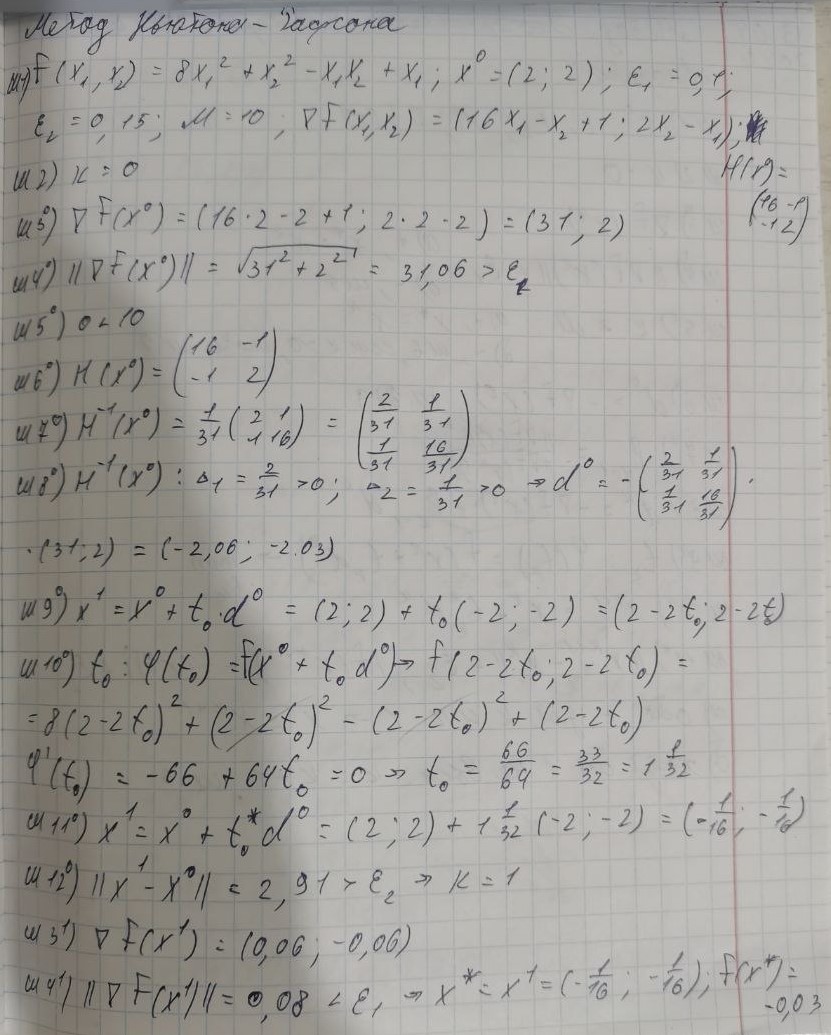 Метод Ньютона – Рафсона
ш1) f(x₁, x₂) = 8x₁² + x₂² - x₁x₂ + x₁; x⁰ = (2; 2); ε₁ = 0,1;
ε₂ = 0,15; M = 10; ∇f(x₁, x₂) = (16x₁ - x₂ + 1; 2x₂ - x₁);
H(x⁰) = (16 -1
-1 2)
ш2) K = 0
ш3⁰) ∇f(x⁰) = (16·2 - 2 + 1; 2·2 - 2) = (31; 2)
ш4⁰) ||∇f(x⁰)|| = √(31² + 2²) = 31,06 > ε₁
ш5⁰) 0 < 10
ш6⁰) H(x⁰) = (16 -1
-1 2)
ш7⁰) H⁻¹(x⁰) = 1/31 (2 1
1 16) = (2/31 1/31
1/31 16/31)
ш8⁰) H⁻¹(x⁰) : Δ₁ = 2/31 > 0; Δ₂ = 1/31 > 0 ⇒ d⁰ = -(2/31 1/31
1/31 16/31) ·
· (31; 2) = (-2,06; -2.03)
ш9⁰) x¹ = x⁰ + t₀·d⁰ = (2; 2) + t₀(-2; -2) = (2 - 2t₀; 2 - 2t₀)
ш10⁰) t₀ : φ(t₀) = f(x⁰ + t₀d⁰) ⇒ f(2 - 2t₀; 2 - 2t₀) =
= 8(2 - 2t₀)² + (2 - 2t₀)² - (2 - 2t₀)² + (2 - 2t₀)
φ'(t₀) = -66 + 64t₀ = 0 ⇒ t₀ = 66/64 = 33/32 = 1 1/32
ш11⁰) x¹ = x⁰ + t₀*d⁰ = (2; 2) + 1 1/32 (-2; -2) = (-1/16; -1/16)
ш12⁰) ||x¹ - x⁰|| = 2,91 > ε₂ ⇒ K = 1
ш3¹) ∇f(x¹) = (0,06; -0,06)
ш4¹) ||∇f(x¹)|| = 0,08 < ε₁ ⇒ x* = x¹ = (-1/16; -1/16); f(x*) =
-0,03